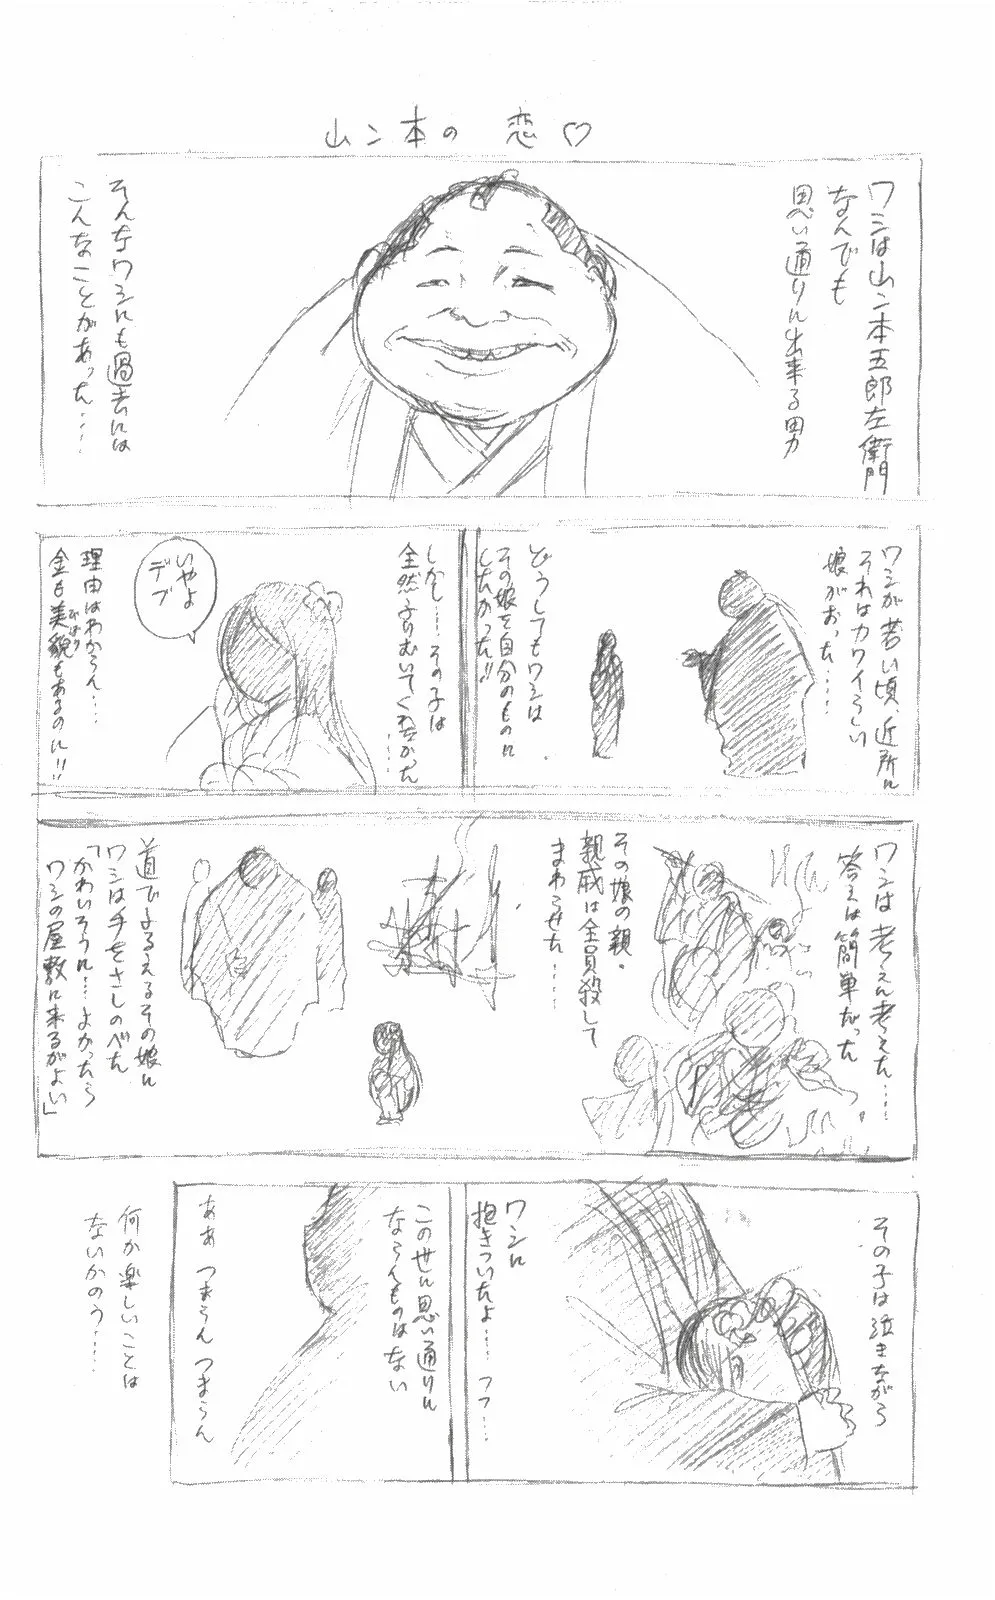 山ン本の 恋♡
ワシは山ン本五郎左衛門
なんでも
思い通りに出来る男
そんなワシにも過去には
こんなことがあった……
ワシが若い頃、近所に
それはカワイらしい
娘がおった……
どうしてもワシは
その娘を自分のものに
したかった!!
しかし…その子は
全然ふりむいてくれなかった
……
いやよ
デブ
理由はわからん……
金も美貌もあるのに!!
びぼう
ワシは考えに考えた……
答えは簡単だった
その娘の親・
親戚は全員殺して
まわらせた……
道でふるえるその娘に
ワシは手をさしのべた
「かわいそうに…よかったら
ワシの屋敷に来るがよい」
その子は泣きながら
ワシに
抱きついたよ……フフ…
この世に思い通りに
ならんものはない
ああ つまらん つまらん
何か楽しいことは
ないかのう……